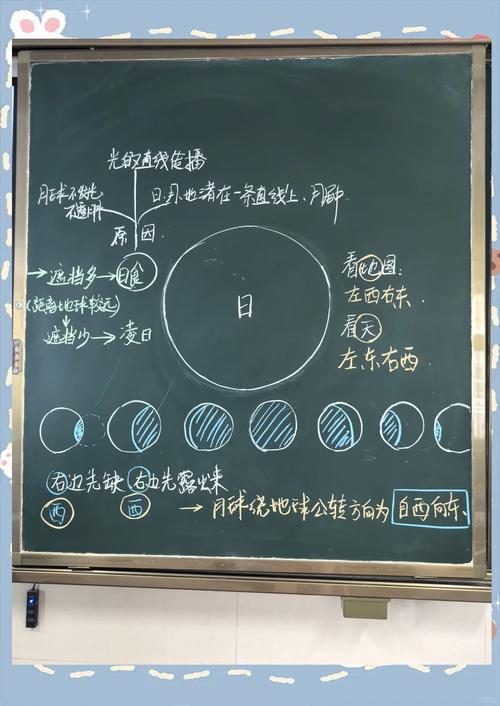 光的直线传播
月球不发光
不透明
日、月、地三者在一条直线上,月居中
原因
日食
→遮挡多→
(距离地球较远)
遮挡少→凌日
日
看地图:
左西右东.
看天
左东右西
右边先缺 右边先露出来
西 西
→月球绕地球公转方向为 自西向东.